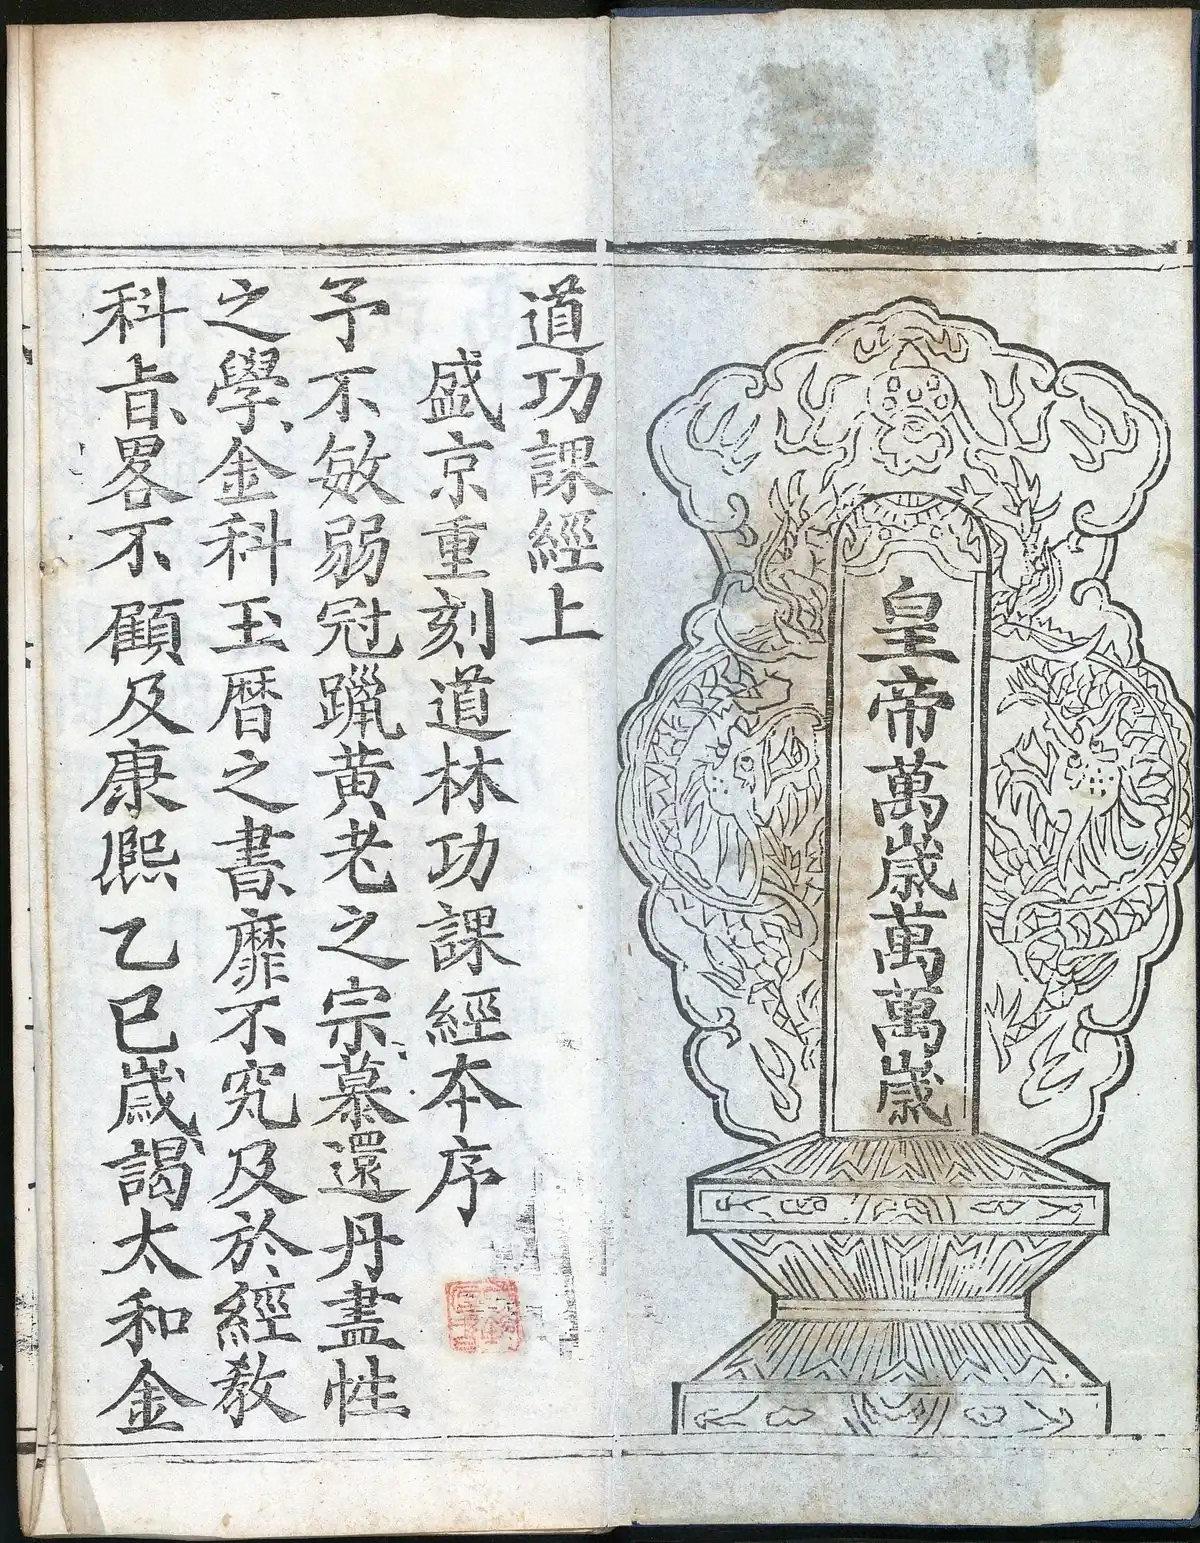 皇帝萬歲萬萬歲
道功課經上
盛京重刻道林功課經本序
予不敏弱冠躐黄老之宗慕還丹盡性
之學金科玉曆之書靡不究及於經教
科旨畧不顧及康熙乙巳歲謁太和金